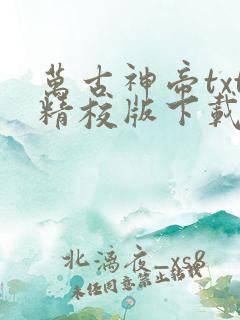 萬古神帝txt
精校版下載
北漓夜_xs8
未经同意禁止转载